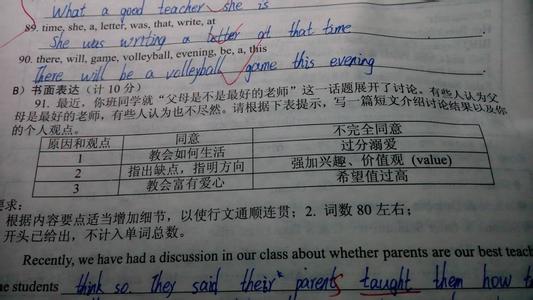 What a good teacher she is
89. time, she, a, letter, was, that, write, at
She was writing a letter at that time
90. there, will, game, volleyball, evening, be, a, this
There will be a volleyball game this evening
B) 书面表达 (计 10 分)
91. 最近，你班同学就“父母是不是最好的老师”这一话题展开了讨论。有些人认为父
母是最好的老师，有些人认为也不尽然。请根据下表提示，写一篇短文介绍讨论结果以及你
的个人观点。
原因和观点 同意 不完全同意
1 教会如何生活 过分溺爱
2 指出缺点，指明方向 强加兴趣、价值观 (value)
3 教会富有爱心 希望值过高
要求：
根据内容要点适当增加细节，以使行文通顺连贯；2. 词数 80 左右；
开头已给出，不计入单词总数。
Recently, we have had a discussion in our class about whether parents are our best teach
students think so. They said their parents taught them how t